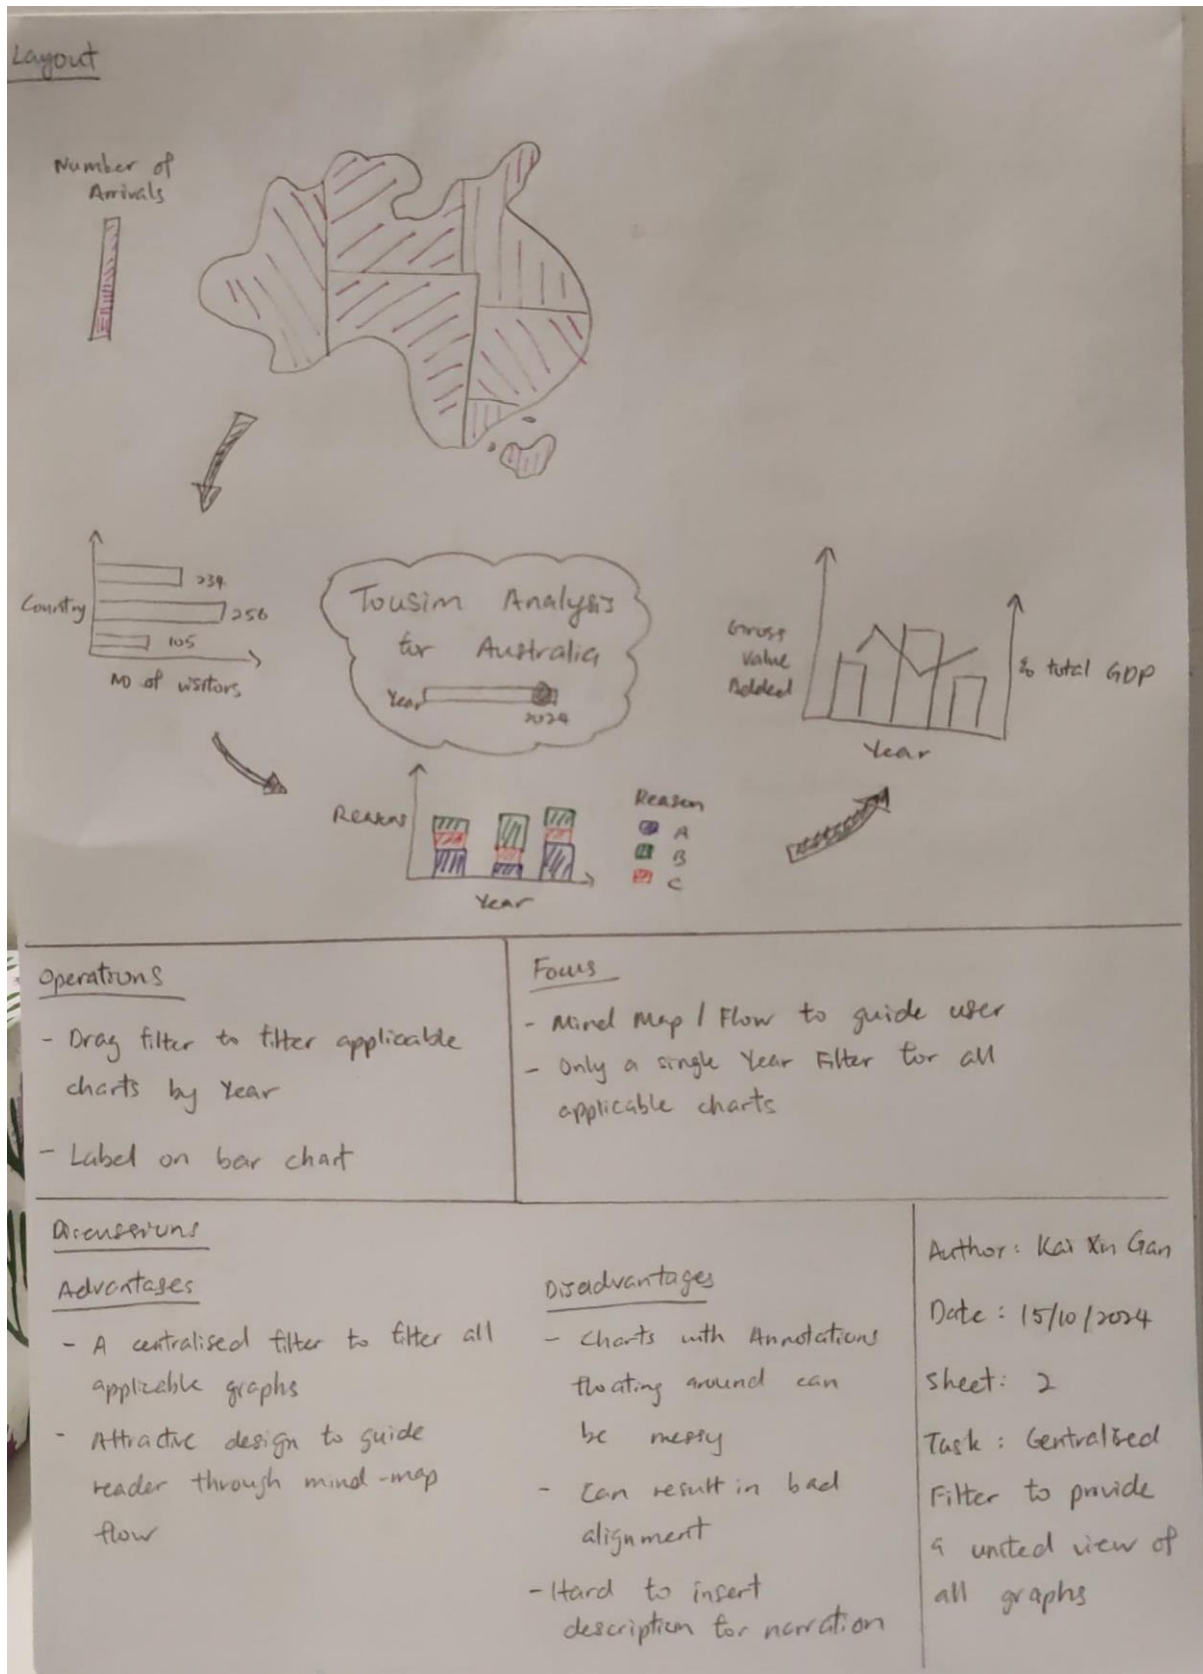 Layout
Number of
Arrivals
Country
234
256
105
no of visitors
Tousim Analysis
for Australia
Year
2024
Gross
Value
Added
% total GDP
Year
Reasons
Year
Reason
A
B
C
Operations
- Drag filter to filter applicable
charts by Year
- Label on bar chart
Focus
- Mind Map / Flow to guide user
- Only a single Year Filter for all
applicable charts
Discussions
Advantages
- A centralised filter to filter all
applicable graphs
- Attractive design to guide
reader through mind-map
flow
Disadvantages
- Charts with Annotations
floating around can
be messy
- Can result in bad
alignment
- Hard to insert
description for narration
Author: Kai Xin Gan
Date: 15/10/2024
Sheet: 2
Task: Centralised
Filter to provide
a united view of
all graphs